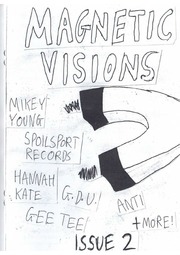 MAGNETIC
VISIONS
MIKEY
YOUNG
SPOILSPORT
RECORDS
HANNAH
KATE
G.D.U!
ANTI
GEE TEE
+MORE!
ISSUE 2